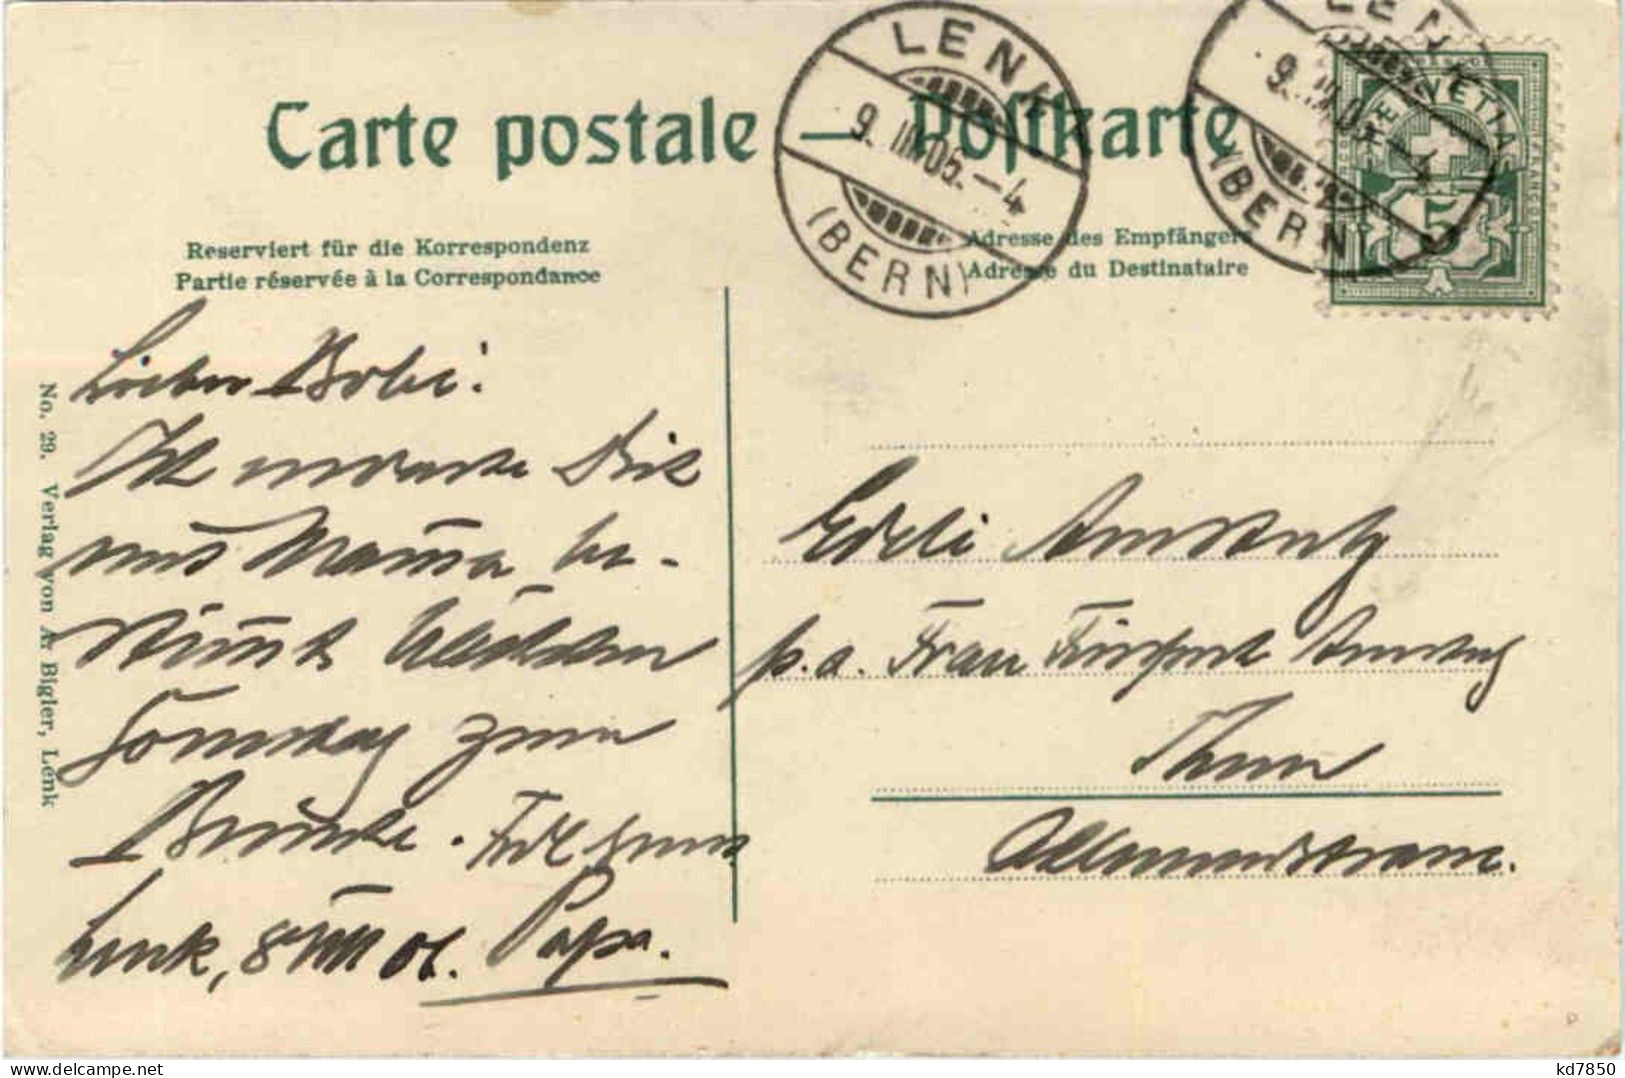 Carte postale — Postkarte
LENK
9. III. 05. – 4
(BERN)
LENK
9. III. 05. – 4
(BERN)
HELVETIA
5
Reserviert für die Korrespondenz
Partie réservée à la Correspondance
Adresse des Empfängers
Adresse du Destinataire
Lieber Bobi!
Ich erwarte Dich
und Mama be-
stimmt nächsten
Sonntag zum
Besuche.
Lenk, 8. VIII 05. Papa.
p. a. Frau Fürsprech Amstutz
Thun
Allmendstrasse.
No. 29. Verlag von Ar Bigler, Lenk
kd7850